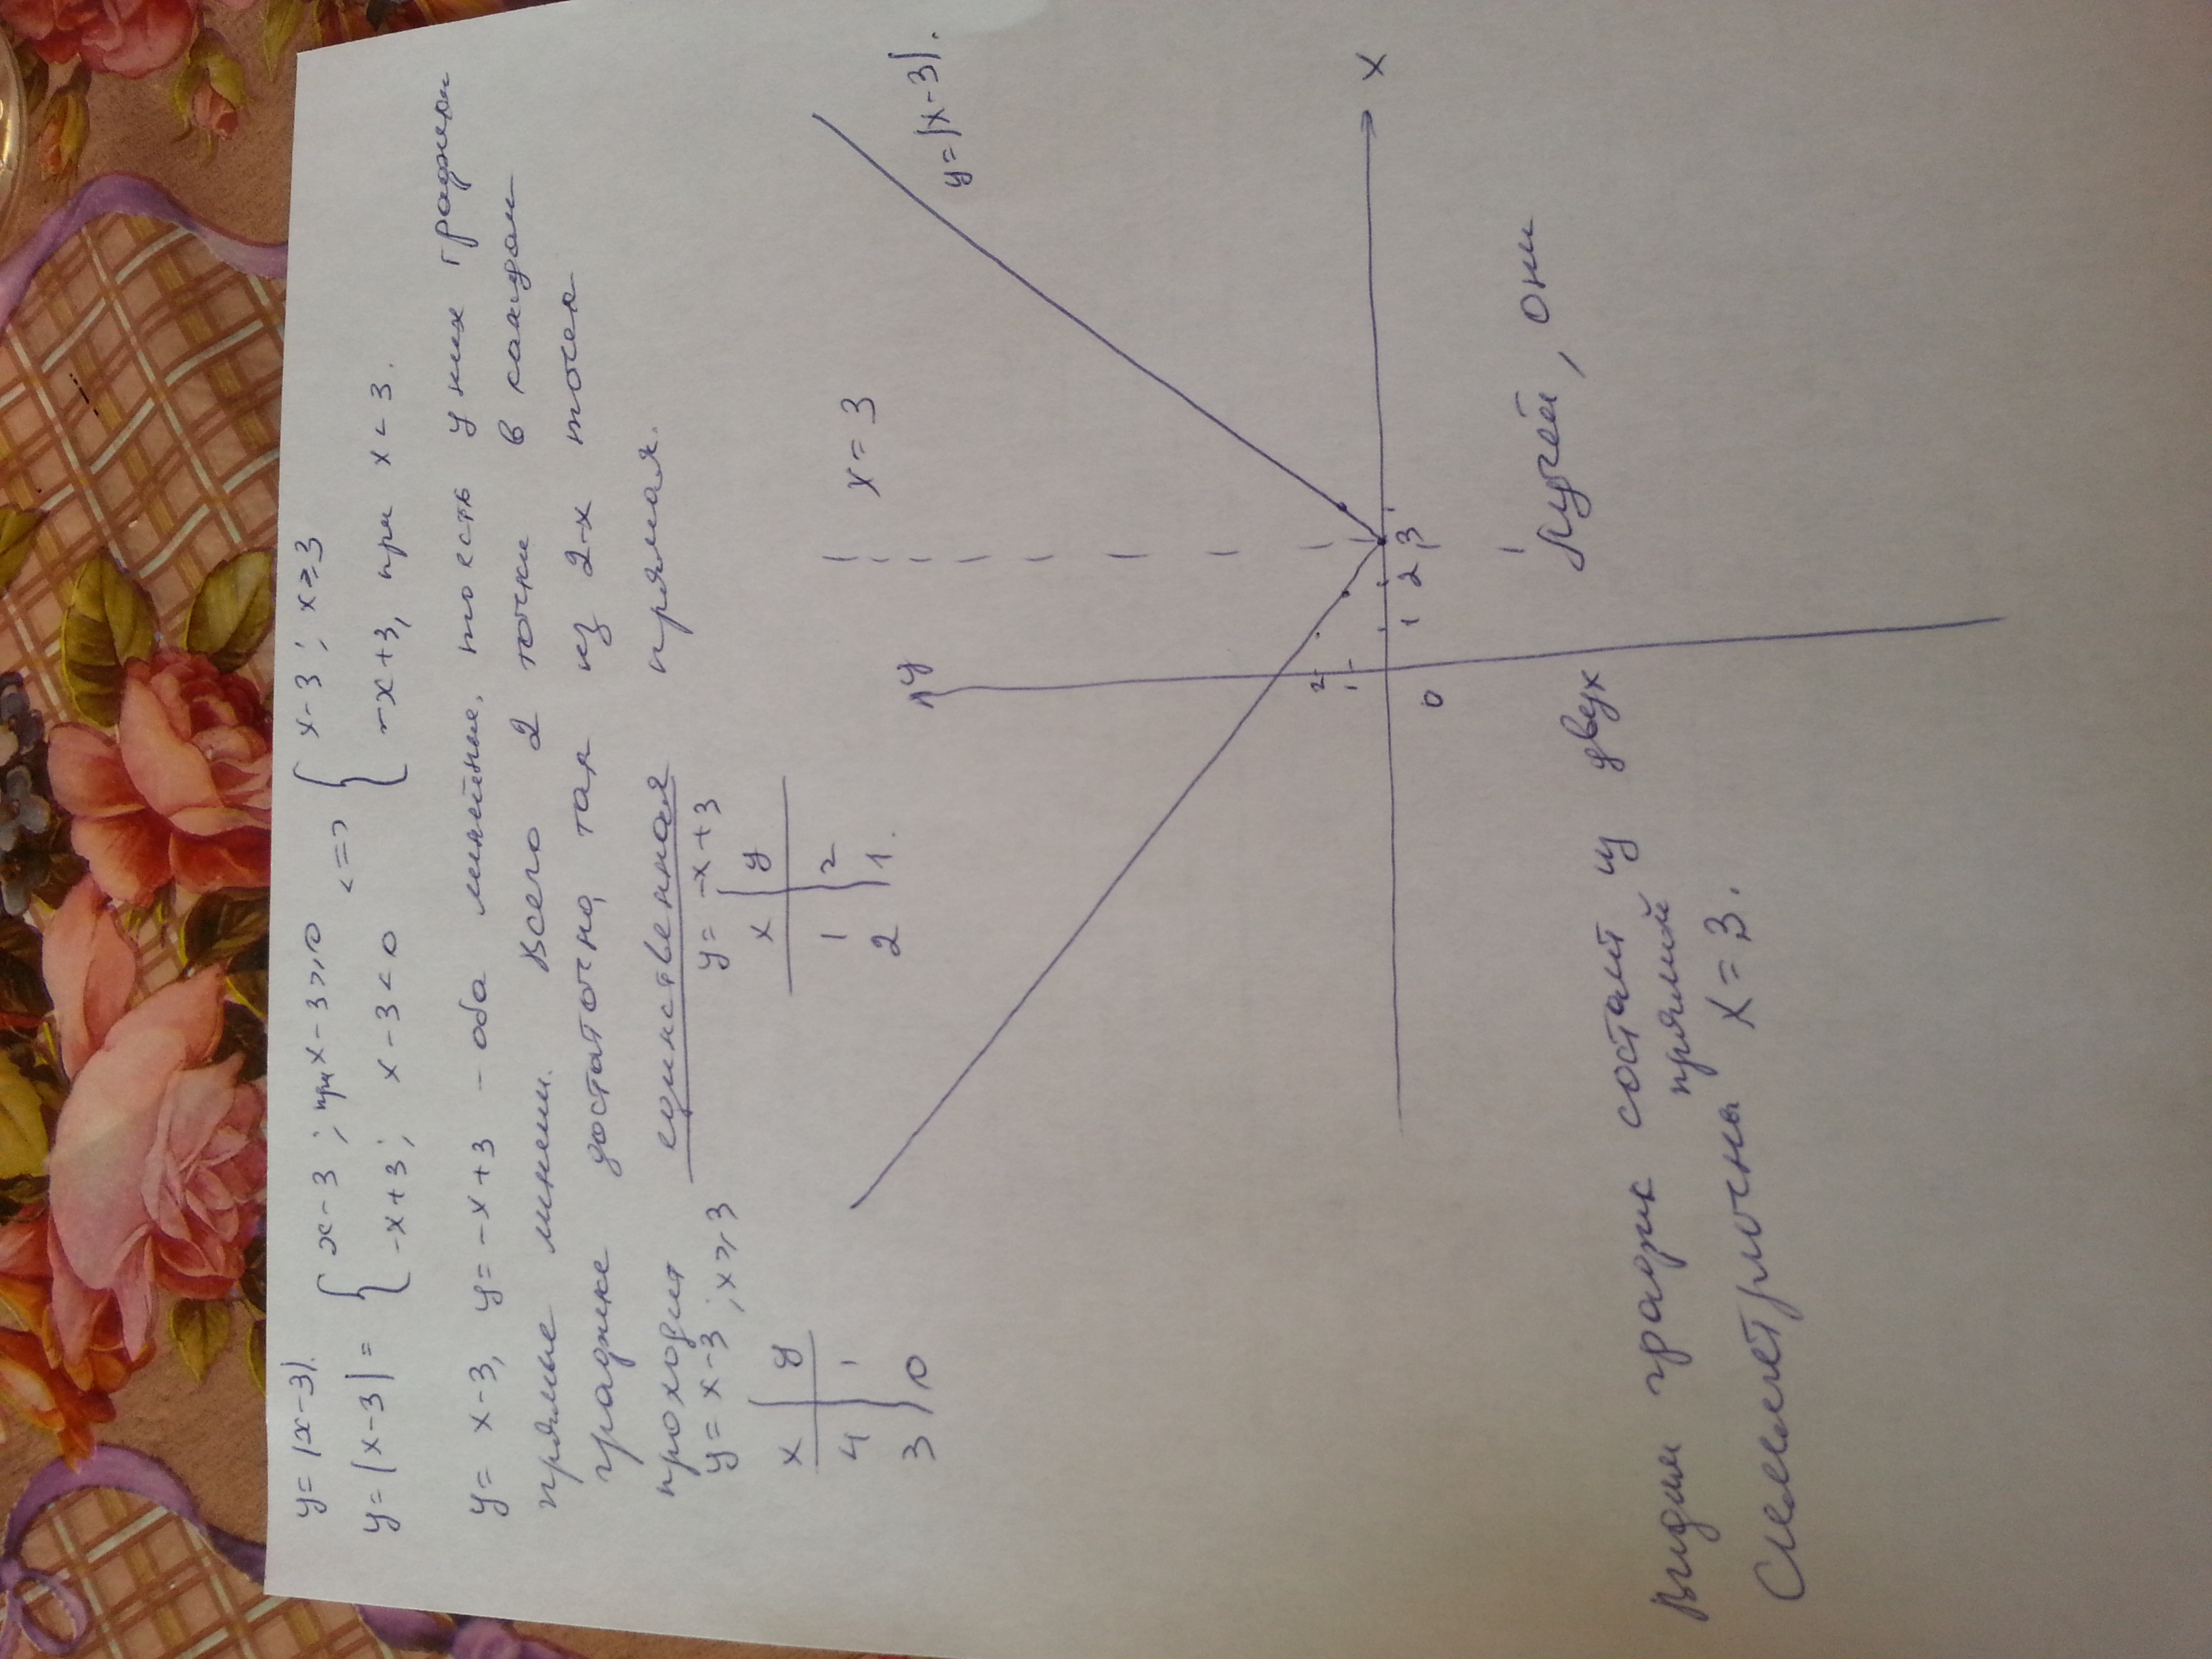 y = |x-3|.
y = |x-3| = { x-3 ; при x-3 ≥ 0 <=> { x-3 ; x ≥ 3
-x+3 ; x-3 < 0 -x+3, при x < 3.
y = x-3, y = -x+3 - оба линейные, то есть у них графики
прямые линии. Всего 2 точки в каждом
графике достаточно, так из 2-х точек
проходит единственная прямая.
y = x-3 ; x ≥ 3 y = -x+3
x | y x | y
4 | 1 1 | 2
3 | 0 2 | 1.
x = 3
y = |x-3|.
y
2
1
0 1 2 3
x
Видим график состоит из двух лучей, они
симметричны прямой x = 3.